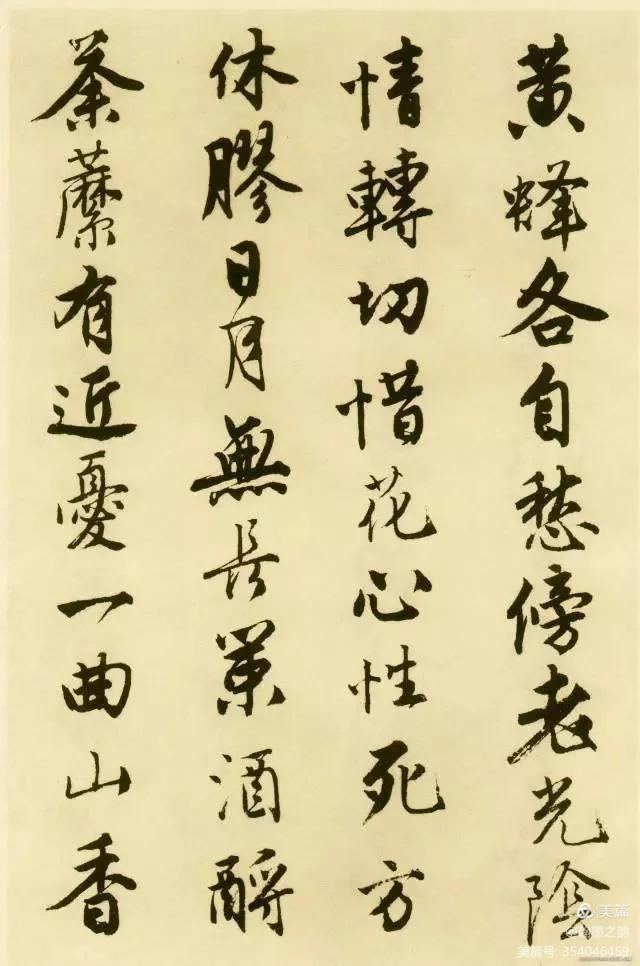 黄蜂各自愁傍老光陰
情轉切惜花心性死方
休膠日月無長策酒酹
荼䕷有近憂一曲山香
美篇
墨之韵
美篇号: 354046459